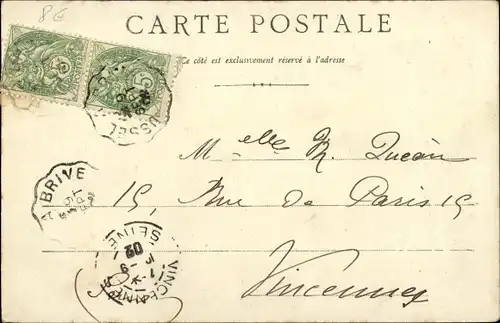 8€
CARTE POSTALE
Ce côté est exclusivement réservé à l'adresse
USSEL
5 5
Melle R. Queau
A BRIVE
15, Rue de Paris 15
SEINE
02
VINCENNES
Vincennes